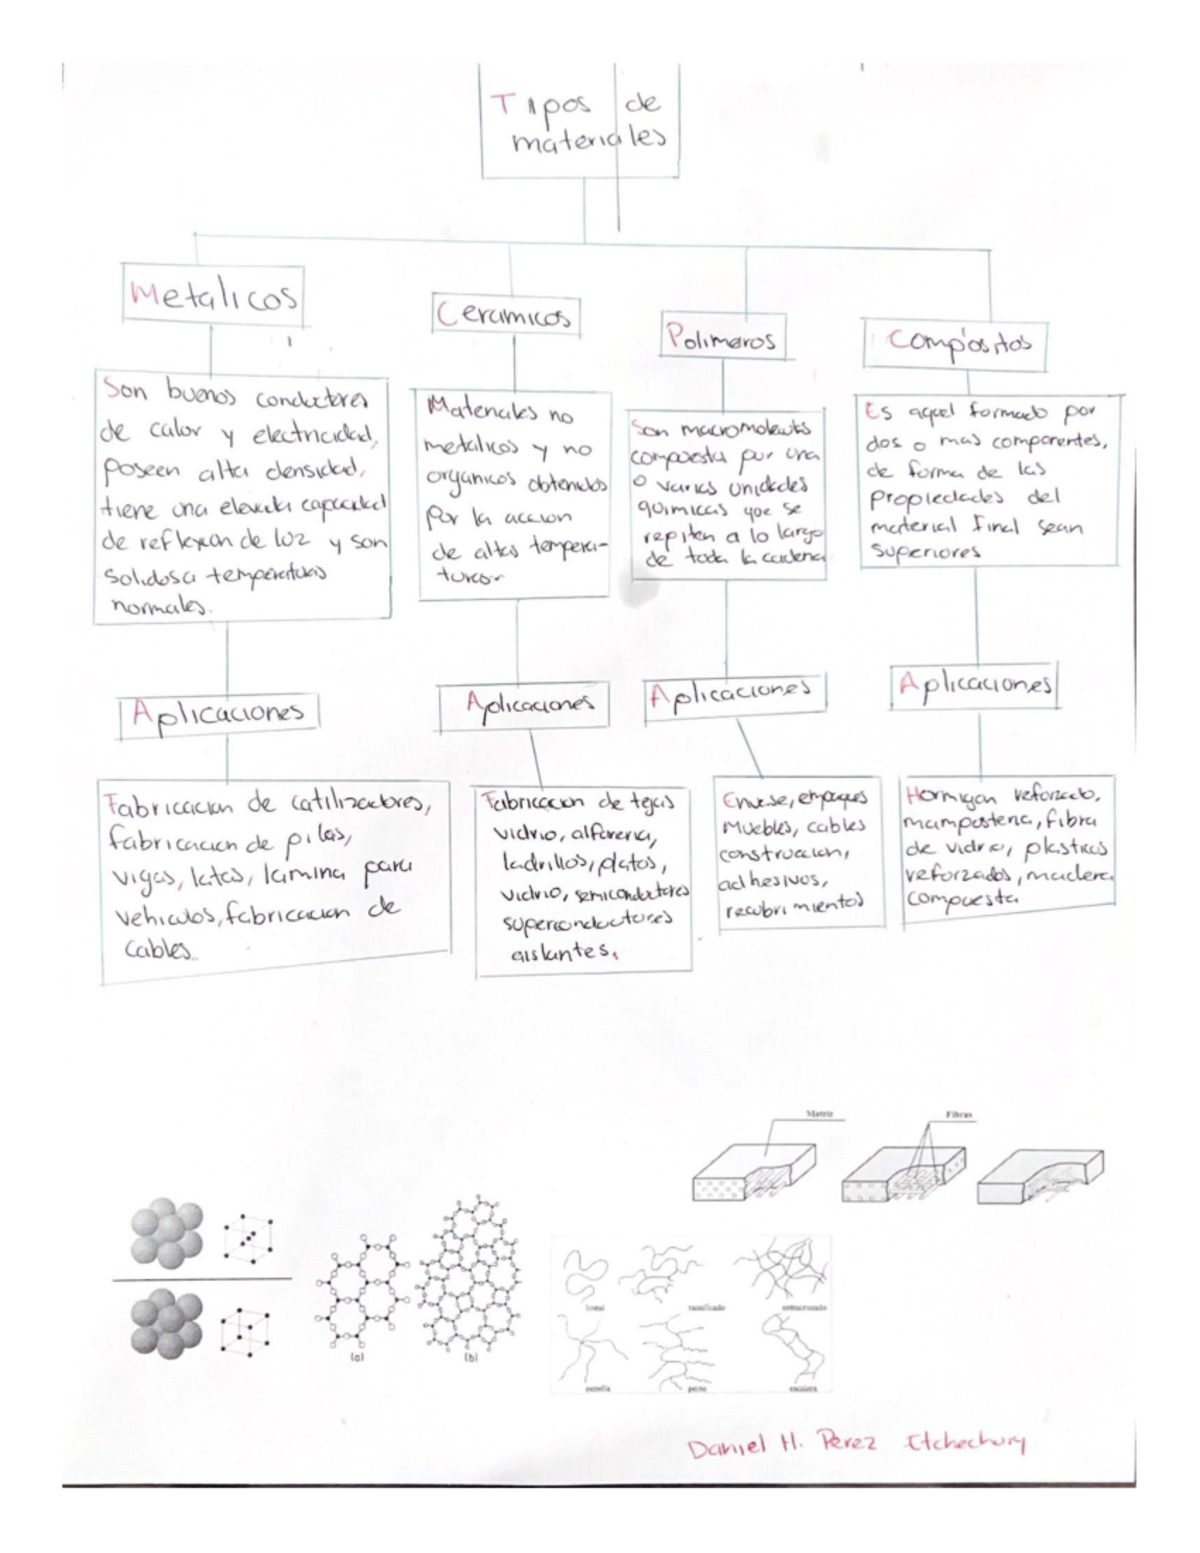 Tipos de
materiales
Metalicos
Ceramicos
Polimeros
Compositos
Son buenos conductores
de calor y electricidad,
poseen alta densidad,
tiene una elevada capacidad
de reflexion de luz y son
solidosa temperaturas
normales.
Materiales no
metalicos y no
organicos obtenidos
por la accion
de altas tempera-
turas.
Son macromolecuts
compuesta por una
o varias unidades
quimicas que se
repiten a lo largo
de toda la cadena
Es aquel formado por
dos o mas componentes,
de forma de las
propiedades del
material final sean
superiores
Aplicaciones
Aplicaciones
Aplicaciones
Aplicaciones
Fabricacion de catilizadores,
fabricacion de pilas,
vigas, latas, lamina para
vehiculos, fabricacion de
cables.
Fabricacion de tejas
vidrio, alfareria,
ladrillos, platos,
vidrio, semiconductores
superconductores
aislantes.
Envase, empaques
Muebles, cables
construccion,
adhesivos,
recubrimientos
Hormigon reforzado,
mamposteria, fibra
de vidrio, plasticos
reforzados, madera
compuesta
Matriz
Fibras
(a)
(b)
lineal
ramificado
entrecruzado
estrella
peine
escalera
Daniel H. Perez Etchechury